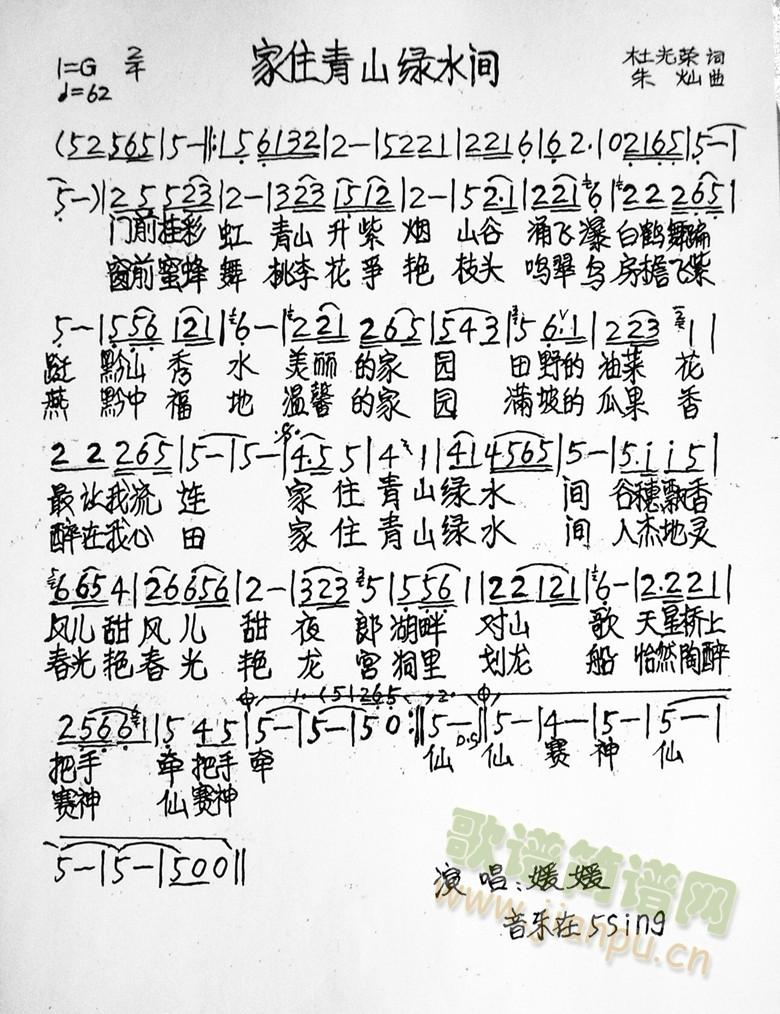 1=G 2/4 家住青山绿水间 杜光荣 词
♩=62 朱灿 曲
(52 565|5-‖:15 6132|2-|5221|2216|62·|02165|5-|
5-)|25 523|2-|323 1512|2-|52·1|221 6|22 265|
门前挂彩虹 青山升紫烟 山谷涌飞瀑 白鹤舞蹁
窗前蜜蜂舞 桃李花争艳 枝头鸣翠鸟 房檐飞紫
5-|556 121|6-|221 265|543|5 6·1|223 1|
跹 黔山秀水 美丽的家园 田野的油菜花
燕 黔中福地 温馨的家园 满坡的瓜果香
22 265|5-|5-|4·5 5|4 1|41 4565|5-|5·i i5|
最让我流连 家住青山绿水间 谷穗飘香
醉在我心田 家住青山绿水间 人杰地灵
665 4|26 656|2-|323 5|556 1|22 121|6-|2·2 21|
风儿甜风儿甜 夜郎湖畔对山歌 天星桥上
春光艳春光艳 龙宫洞里划龙船 怡然陶醉
1·(51265 2·
25661|5 45|5-|5-|50:‖5-‖5-|4-|5-|5-|
D.S
把手牵把手牵 仙 仙赛神仙
赛神仙赛神
5-|5-|500‖
歌谱简谱网
演唱:媛媛
www.jianpu.cn
音乐在5Sing